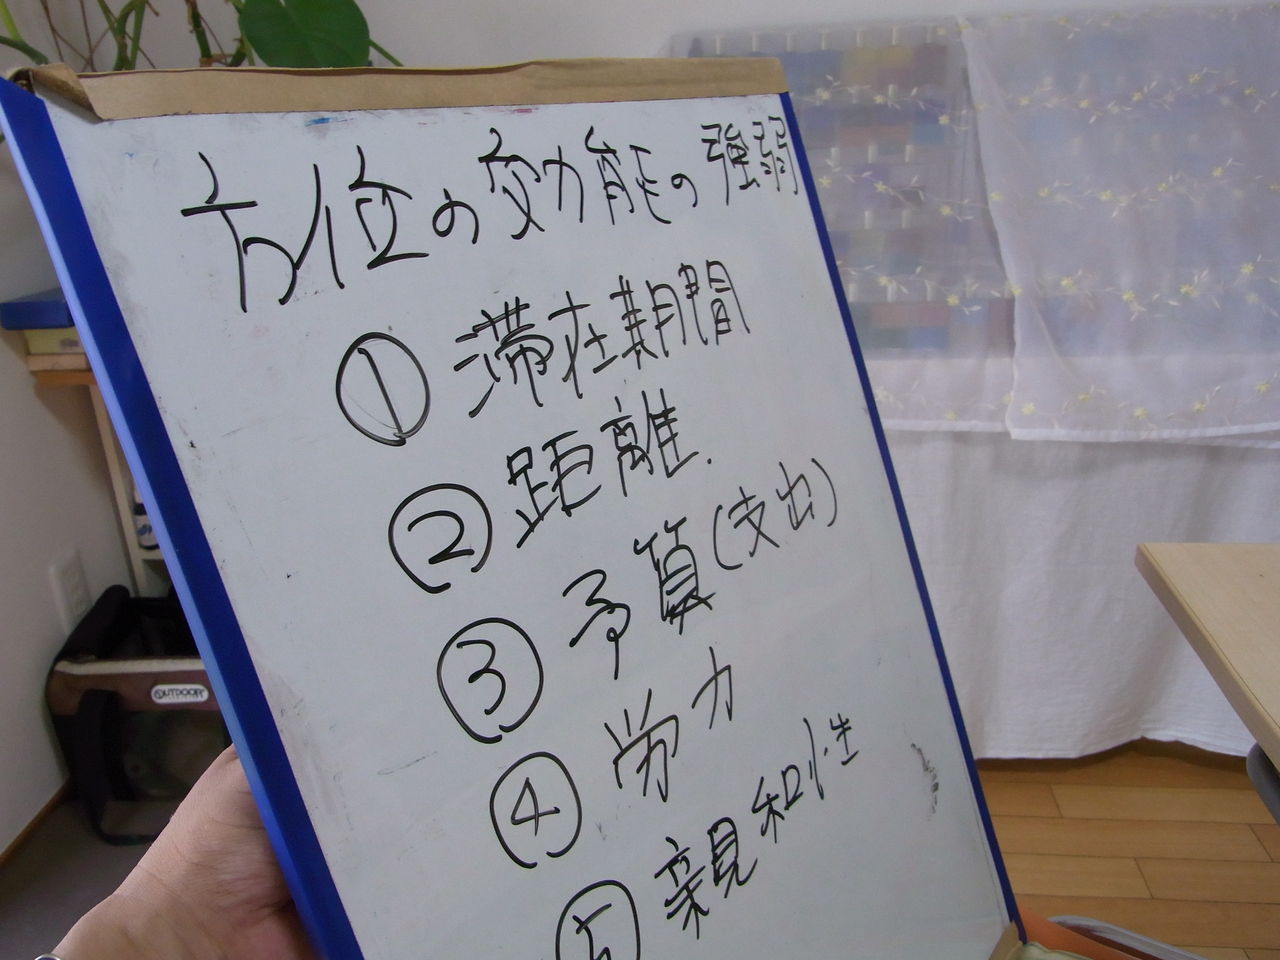 方位の効能の強弱
① 滞在期間
② 距離
③ 予算(支出)
④ 労力
⑤ 親和性
OUTDOOR